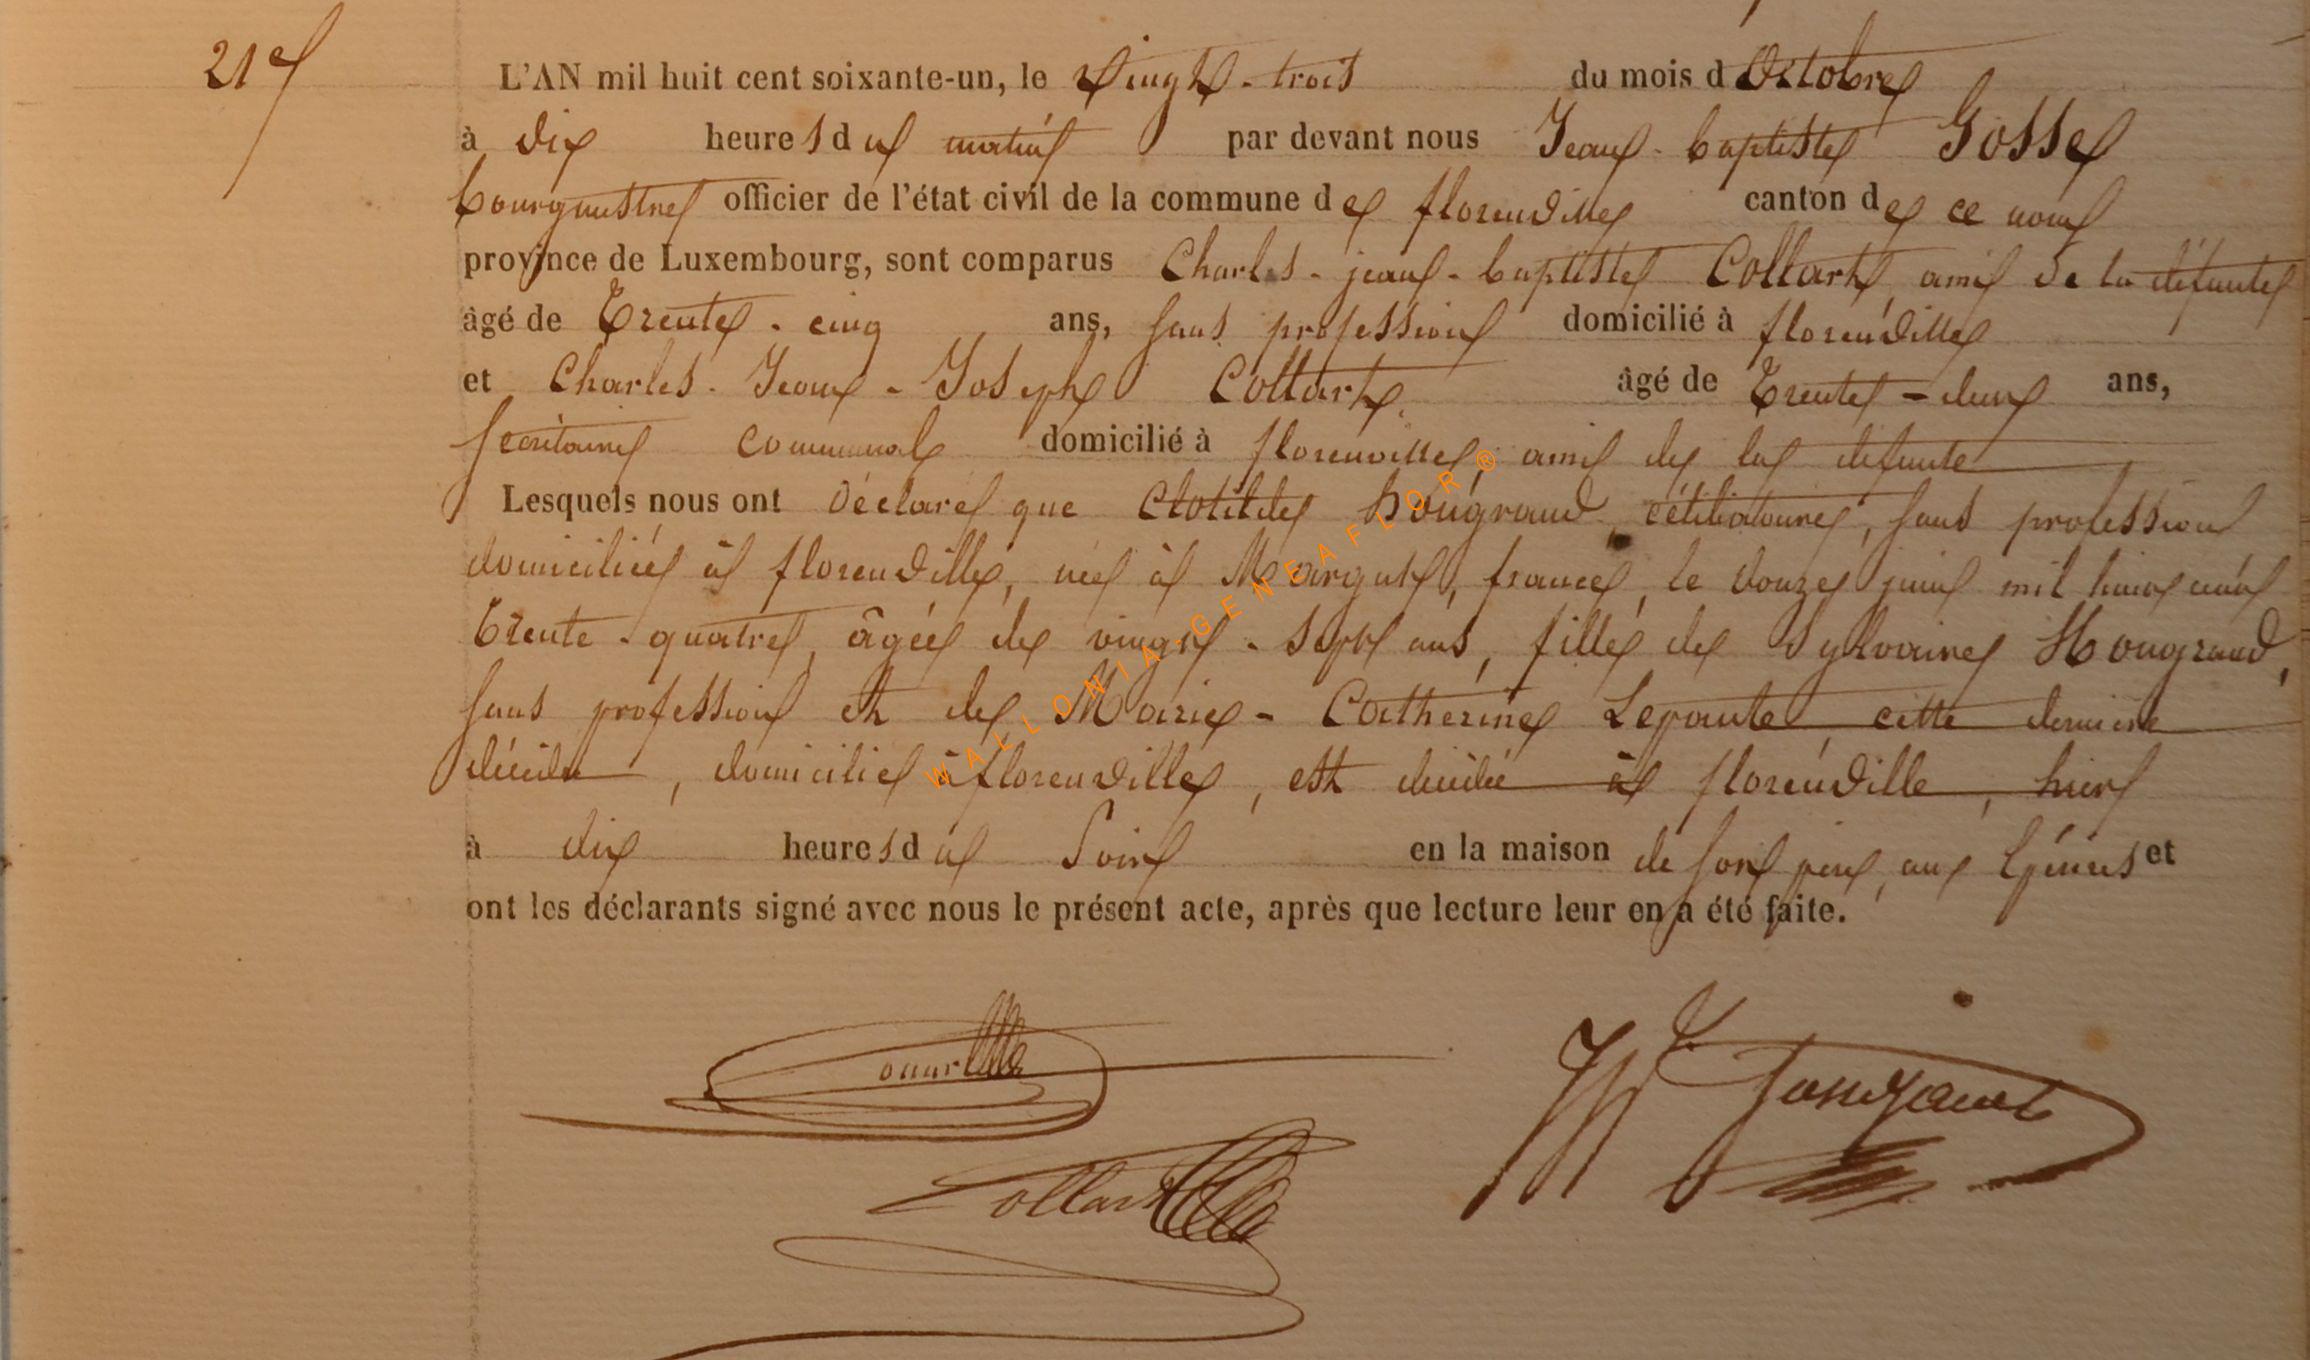 21e
L'AN mil huit cent soixante-un, le vingt-trois du mois d'Octobre
à dix heures du matin par devant nous Jean-baptiste Gosse
bourgmestre officier de l'état civil de la commune de florenville canton de ce nom
province de Luxembourg, sont comparus Charles-jean-baptiste Collart, ami de la défunte
âgé de Trente-cinq ans, sans profession domicilié à florenville
et Charles-Jean-Joseph Collart âgé de Trente-deux ans,
secrétaire communal domicilié à florenville, ami de la défunte
Lesquels nous ont déclaré que Clotilde hougraud, célibataire, sans profession
domiciliée à florenville, née à Margut, france, le douze juin mil huit cent
Trente-quatre, âgée de vingt-sept ans, fille de Sylvain Hougraud,
sans profession et de Marie-Catherine Lepaute, cette dernière
décédée, domicilié à florenville, est décédée à florenville, hier
à dix heures du Soir en la maison de son père, aux Epioux et
ont les déclarants signé avec nous le présent acte, après que lecture leur en a été faite.
Collart
WALLONIA-GENEAFLOR®